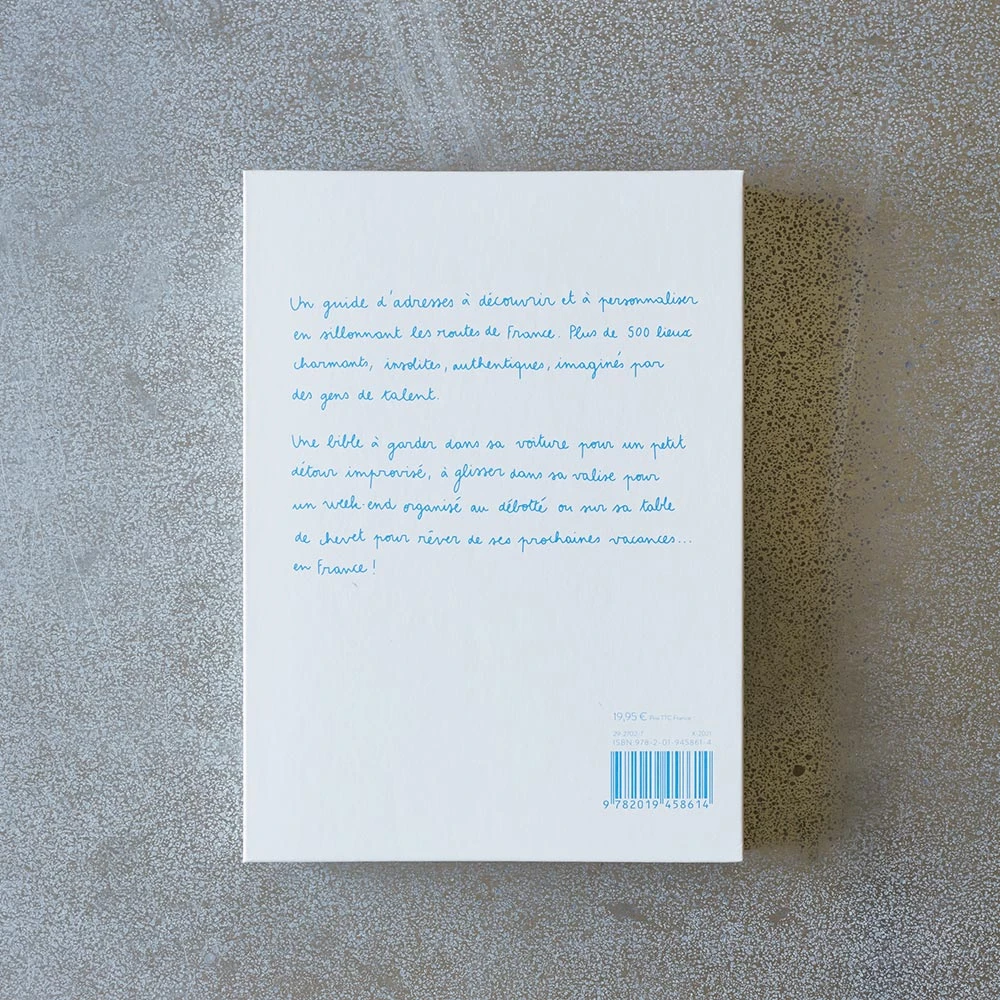 Un guide d'adresses à découvrir et à personnaliser
en sillonnant les routes de France. Plus de 500 lieux
charmants, insolites, authentiques, imaginés par
des gens de talent.
Une bible à garder dans sa voiture pour un petit
détour improvisé, à glisser dans sa valise pour
un week-end organisé au débotté ou sur sa table
de chevet pour rêver de ses prochaines vacances...
en France !
19,95 € Prix TTC France
29-2702-7 X-2021
ISBN:978-2-01-945861-4
9 782019 458614